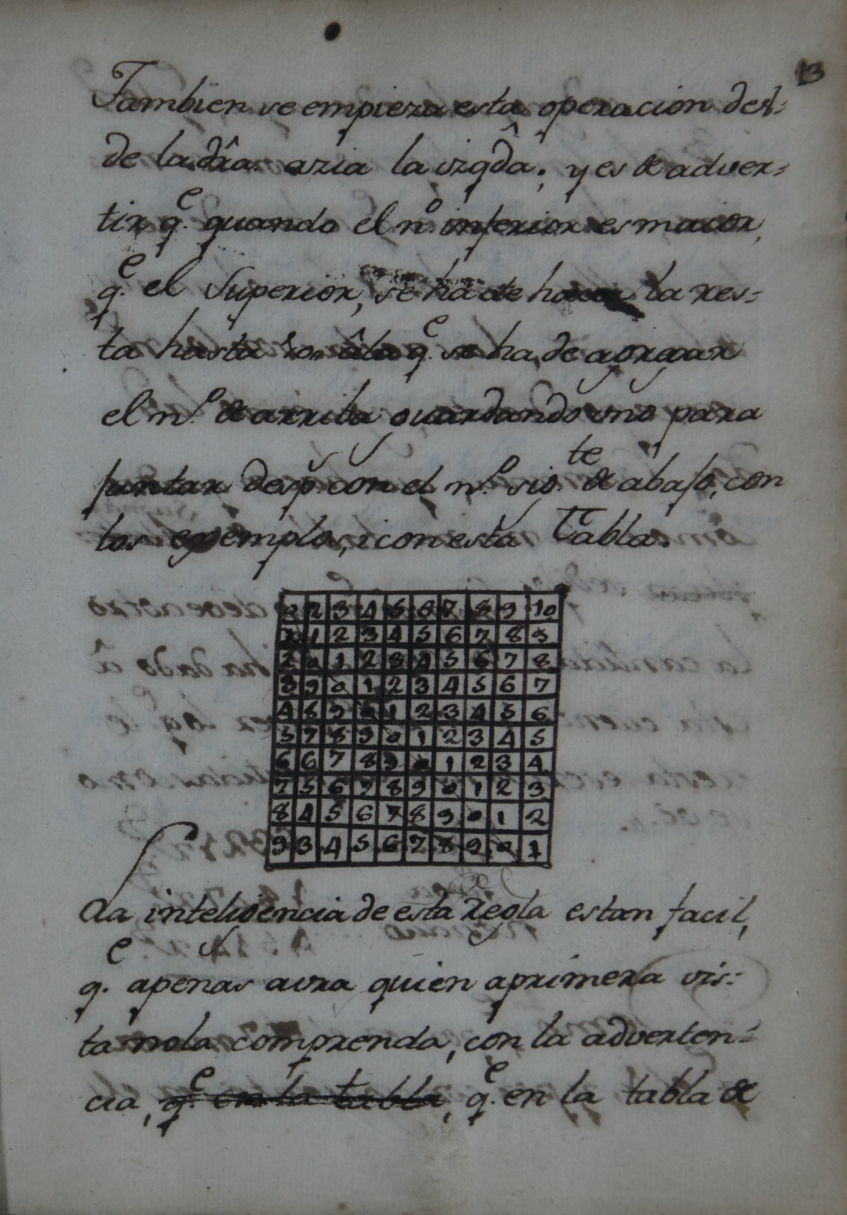 13
Tambien se empieza esta operacion des=
de la dr̂a. azia la yzqd̂a; y es de adver=
tir q.e quando el n.o inferior es maior,
q.e el Superior, se ha de hacer la res=
ta hasta 10. âla q.e se ha de agregar
el n.o de arriba guardando uno para
juntar desp. con el n.o sig.te de abajo, con
los exemplos, i con esta Tabla.
0 2 3 4 5 6 7 8 9 10
1 1 2 3 4 5 6 7 8 9
2 0 1 2 3 4 5 6 7 8
3 9 0 1 2 3 4 5 6 7
4 8 9 0 1 2 3 4 5 6
5 7 8 9 0 1 2 3 4 5
6 6 7 8 9 0 1 2 3 4
7 5 6 7 8 9 0 1 2 3
8 4 5 6 7 8 9 0 1 2
9 3 4 5 6 7 8 9 0 1
La inteligencia de esta Regla es tan facil,
q.e apenas avra quien aprimera vis=
ta nola comprenda, con la adverten=
cia, q.e en la tabla, q.e en la tabla de